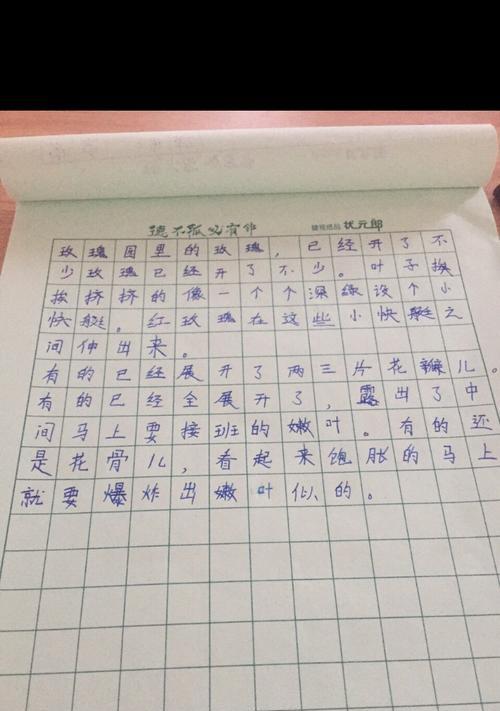 德不孤必有邻 状元郎
玫瑰园里的玫瑰，已经开了不
少玫瑰已经开了不少。叶子挨
挨挤挤的像一个个深绿设个小
快艇。红玫瑰在这些小快艇之
间伸出来。
有的已经展开了两三片花瓣儿。
有的已经全展开了，露出了中
间马上要接班的嫩叶。有的还
是花骨儿，看起来饱胀的马上
就要爆炸出嫩叶似的。